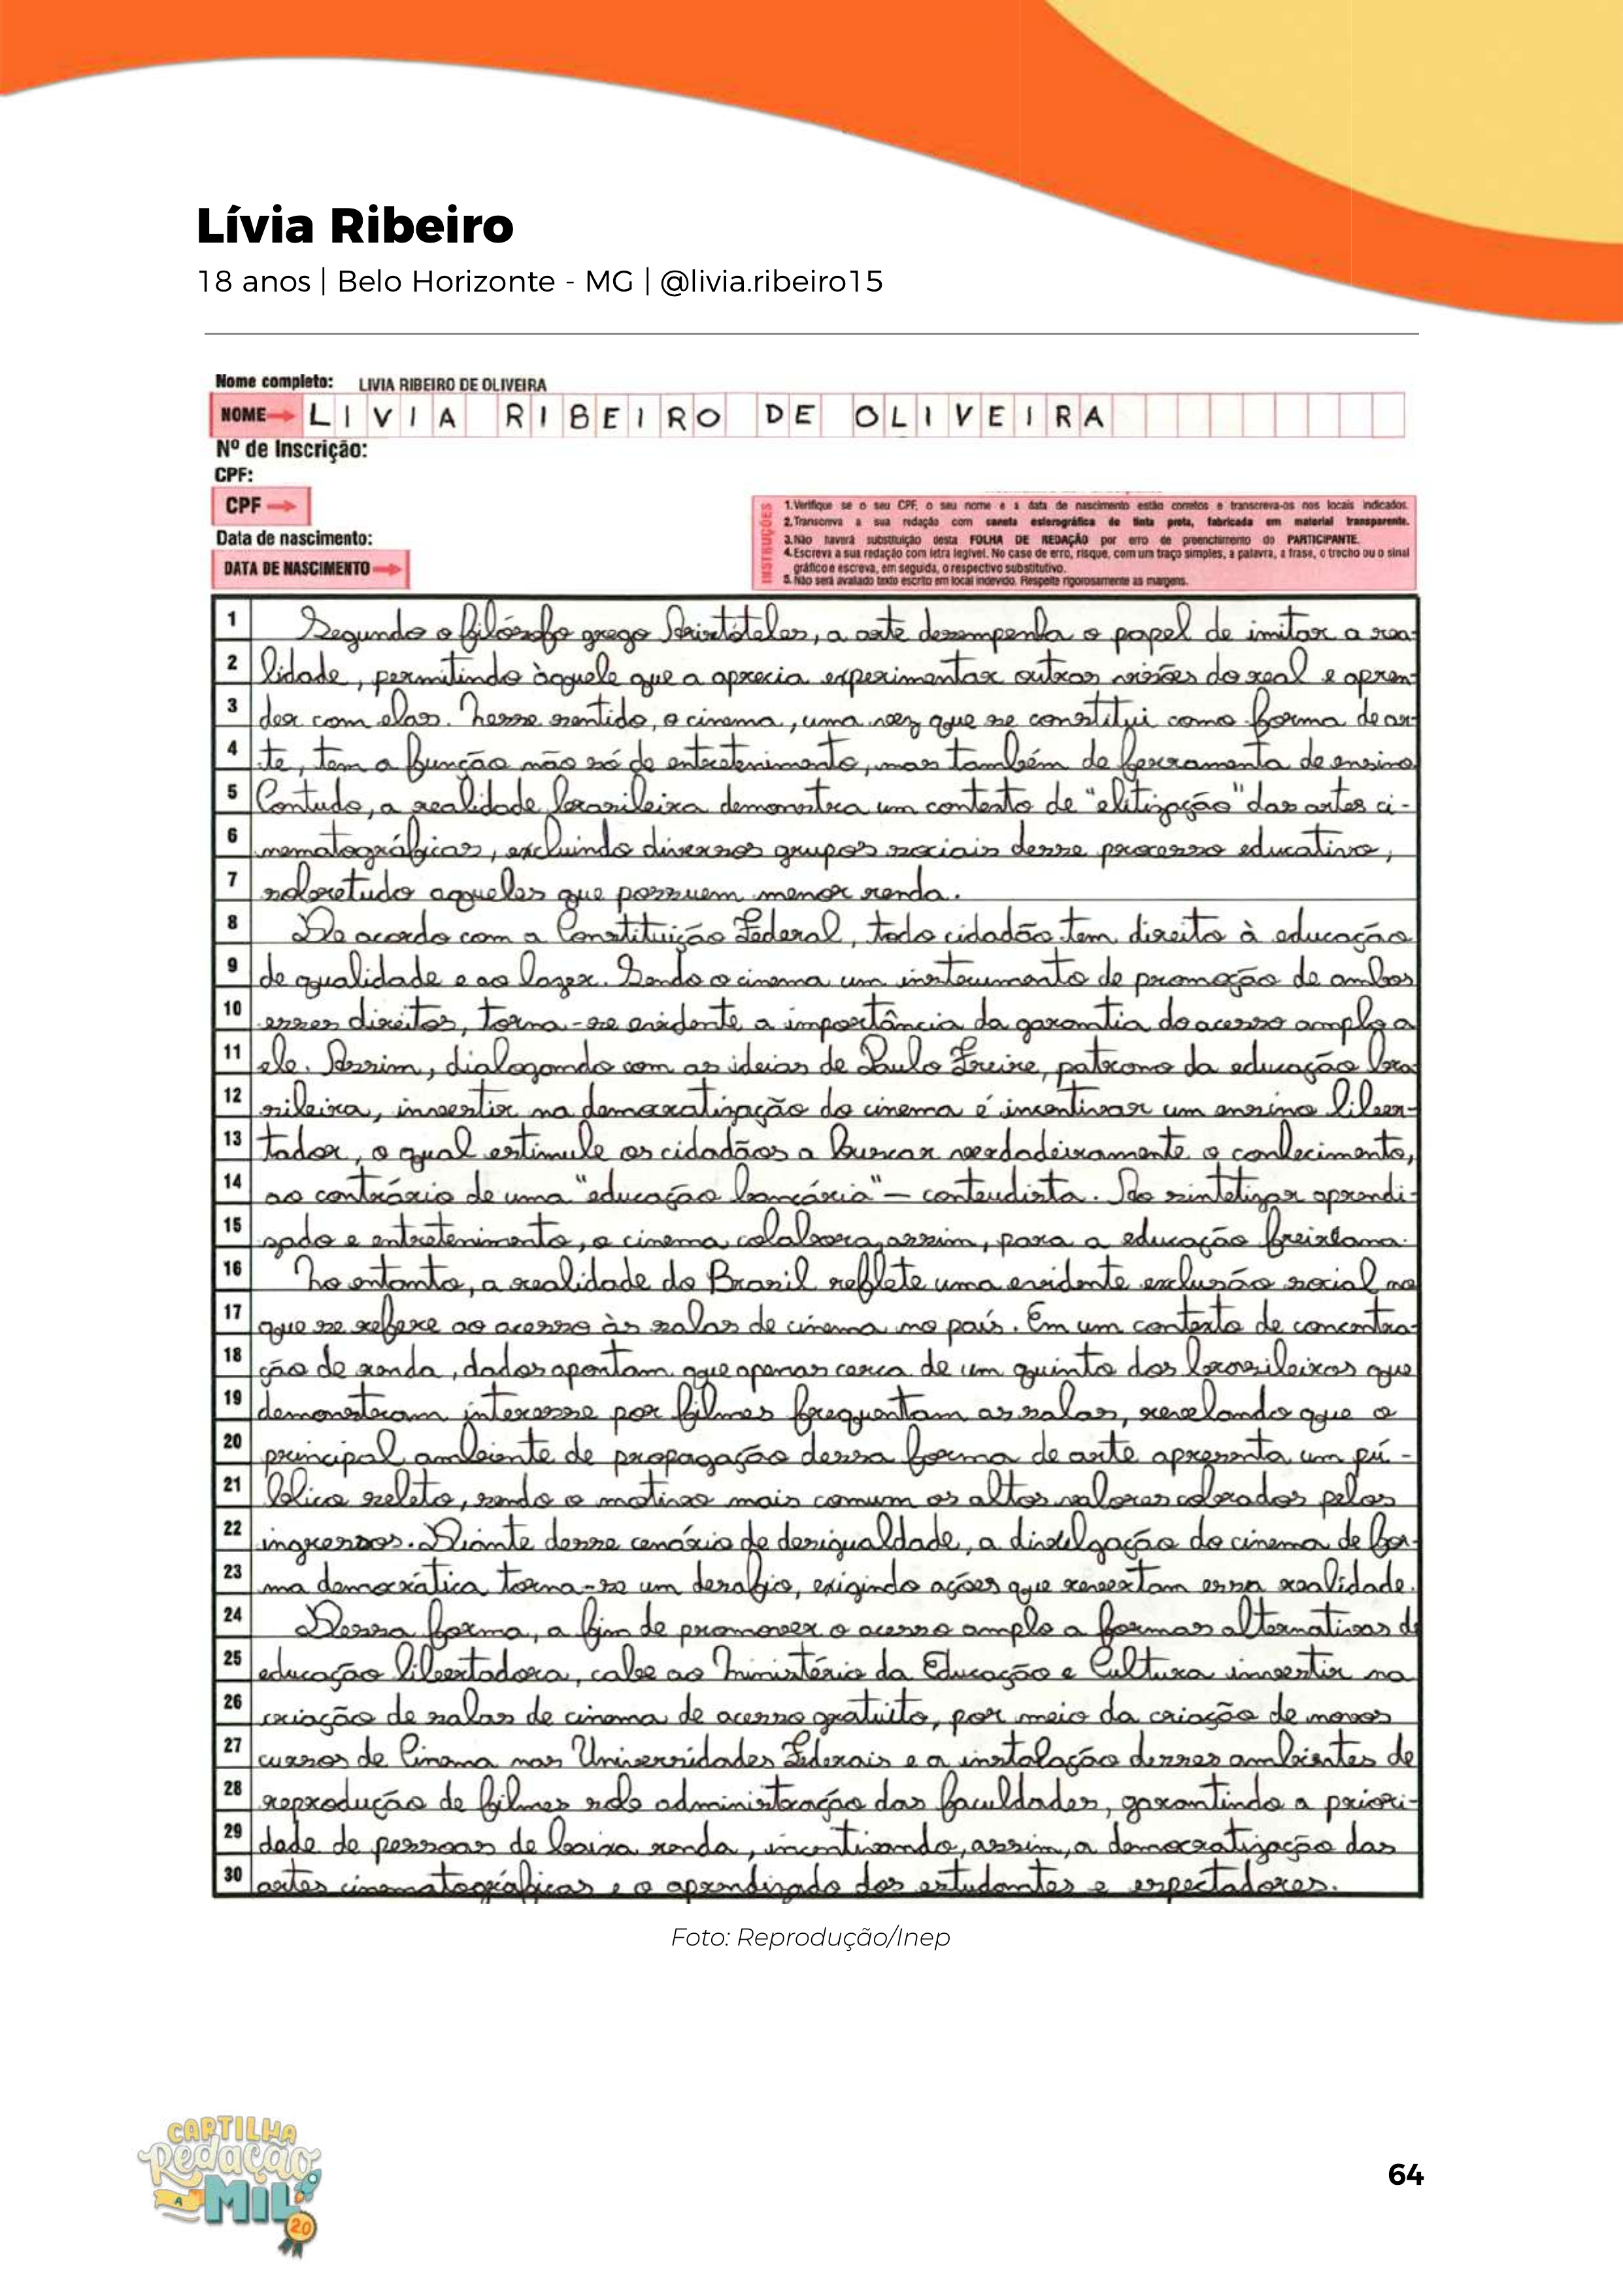 Lívia Ribeiro
18 anos | Belo Horizonte - MG | @livia.ribeiro15
Nome completo: LIVIA RIBEIRO DE OLIVEIRA
NOME LIVIA RIBEIRO DE OLIVEIRA
Nº de Inscrição:
CPF:
CPF
Data de nascimento:
DATA DE NASCIMENTO
INSTRUÇÕES
1. Verifique se o seu CPF, o seu nome e a data de nascimento estão corretos e transcreva-os nos locais indicados.
2. Transcreva a sua redação com caneta esferográfica de tinta preta, fabricada em material transparente.
3. Não haverá substituição desta FOLHA DE REDAÇÃO por erro de preenchimento do PARTICIPANTE.
4. Escreva a sua redação com letra legível. No caso de erro, risque, com um traço simples, a palavra, a frase, o trecho ou o sinal
gráfico e escreva, em seguida, o respectivo substitutivo.
5. Não será avaliado texto escrito em local indevido. Respeite rigorosamente as margens.
1 Segundo o filósofo grego Aristóteles, a arte desempenha o papel de imitar a rea-
2 lidade, permitindo àquele que a aprecia experimentar outras visões do real e apren-
3 der com elas. Nesse sentido, o cinema, uma vez que se constitui como forma de ar-
4 te, tem a função não só de entretenimento, mas também de ferramenta de ensino.
5 Contudo, a realidade brasileira demonstra um contexto de "elitização" das artes ci-
6 nematográficas, excluindo diversos grupos sociais desse processo educativo,
7 sobretudo aqueles que possuem menor renda.
8 De acordo com a Constituição Federal, todo cidadão tem direito à educação
9 de qualidade e ao lazer. Sendo o cinema um instrumento de promoção de ambos
10 esses direitos, torna-se evidente a importância da garantia do acesso amplo a
11 ele. Assim, dialogando com as ideias de Paulo Freire, patrono da educação bra-
12 sileira, investir na democratização do cinema é incentivar um ensino liber-
13 tador, o qual estimule os cidadãos a buscar verdadeiramente o conhecimento,
14 ao contrário de uma "educação bancária" – conteudista. Ao sintetizar aprendi-
15 zado e entretenimento, o cinema colabora, assim, para a educação freiriana.
16 No entanto, a realidade do Brasil reflete uma evidente exclusão social no
17 que se refere ao acesso às salas de cinema no país. Em um contexto de concentra-
18 ção de renda, dados apontam que apenas cerca de um quinto dos brasileiros que
19 demonstram interesse por filmes frequentam as salas, revelando que o
20 principal ambiente de propagação dessa forma de arte apresenta um pú-
21 blico seleto, sendo o motivo mais comum os altos valores cobrados pelos
22 ingressos. Diante desse cenário de desigualdade, a divulgação do cinema de for-
23 ma democrática torna-se um desafio, exigindo ações que revertam essa realidade.
24 Dessa forma, a fim de promover o acesso amplo a formas alternativas de
25 educação libertadora, cabe ao Ministério da Educação e Cultura investir na
26 criação de salas de cinema de acesso gratuito, por meio da criação de novos
27 cursos de Cinema nas Universidades Federais e a instalação desses ambientes de
28 reprodução de filmes sob administração das faculdades, garantindo a priori-
29 dade de pessoas de baixa renda, incentivando, assim, a democratização das
30 artes cinematográficas e o aprendizado dos estudantes e espectadores.
Foto: Reprodução/Inep
CARTILHA
Redação
A MIL
20
64